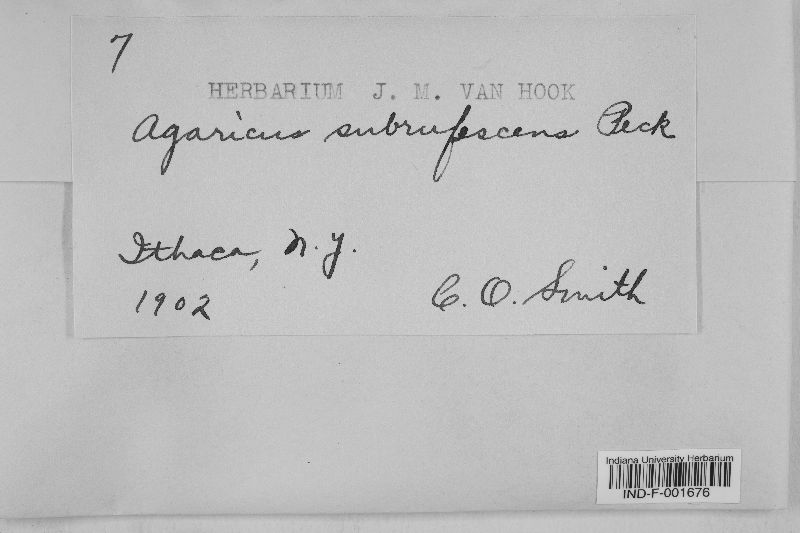 7
HERBARIUM J. M. VAN HOOK
Agaricus subrufescens Peck
Ithaca, N.Y.
1902
C. O. Smith
Indiana University Herbarium
IND-F-001676